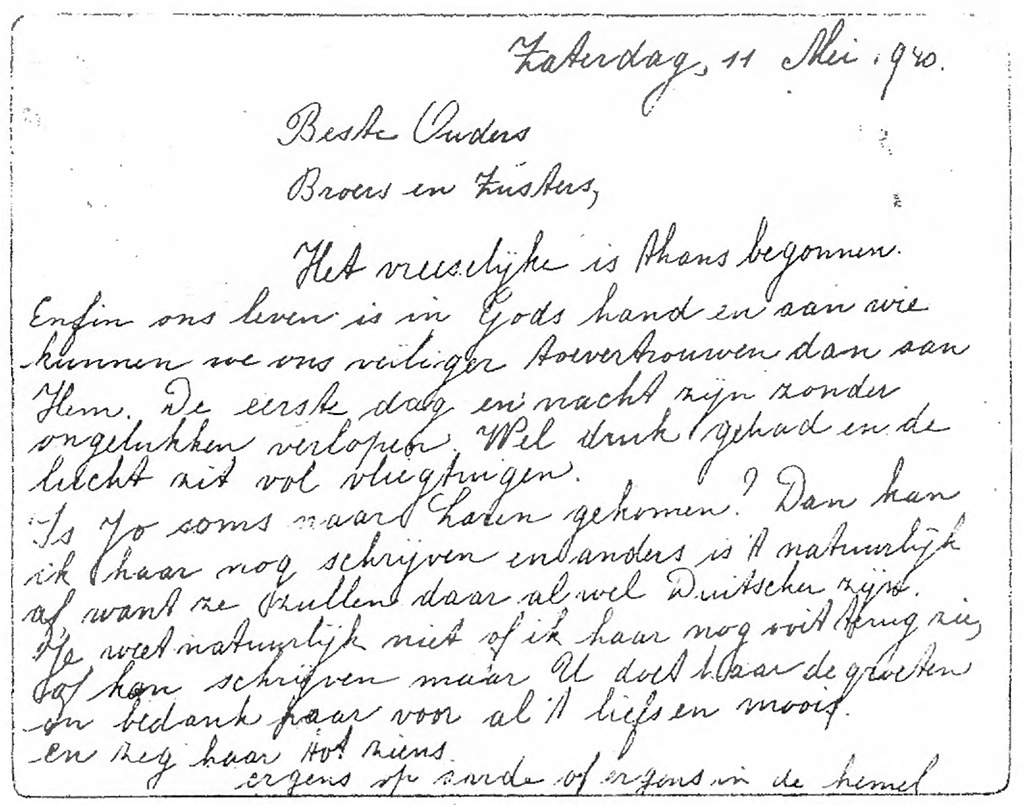 Zaterdag, 11 Mei 1940.
Beste Ouders
Broers en Zusters,
Het vreeselijke is thans begonnen.
Enfin ons leven is in Gods hand en aan wie
kunnen we ons veiliger toevertrouwen dan aan
Hem. De eerste dag en nacht zijn zonder
ongelukken verlopen. Wel druk gehad en de
lucht zit vol vliegtuigen.
Is Jo soms naar Haren gekomen? Dan kan
ik haar nog schrijven en anders is 't natuurlijk
af want ze zullen daar al wel Duitscher zijn.
Je weet natuurlijk niet of ik haar nog ooit terug zie,
of kan schrijven maar U doet haar de groeten
en bedank haar voor al 't liefs en moois.
en zeg haar tot ziens
ergens op aarde of ergens in de hemel